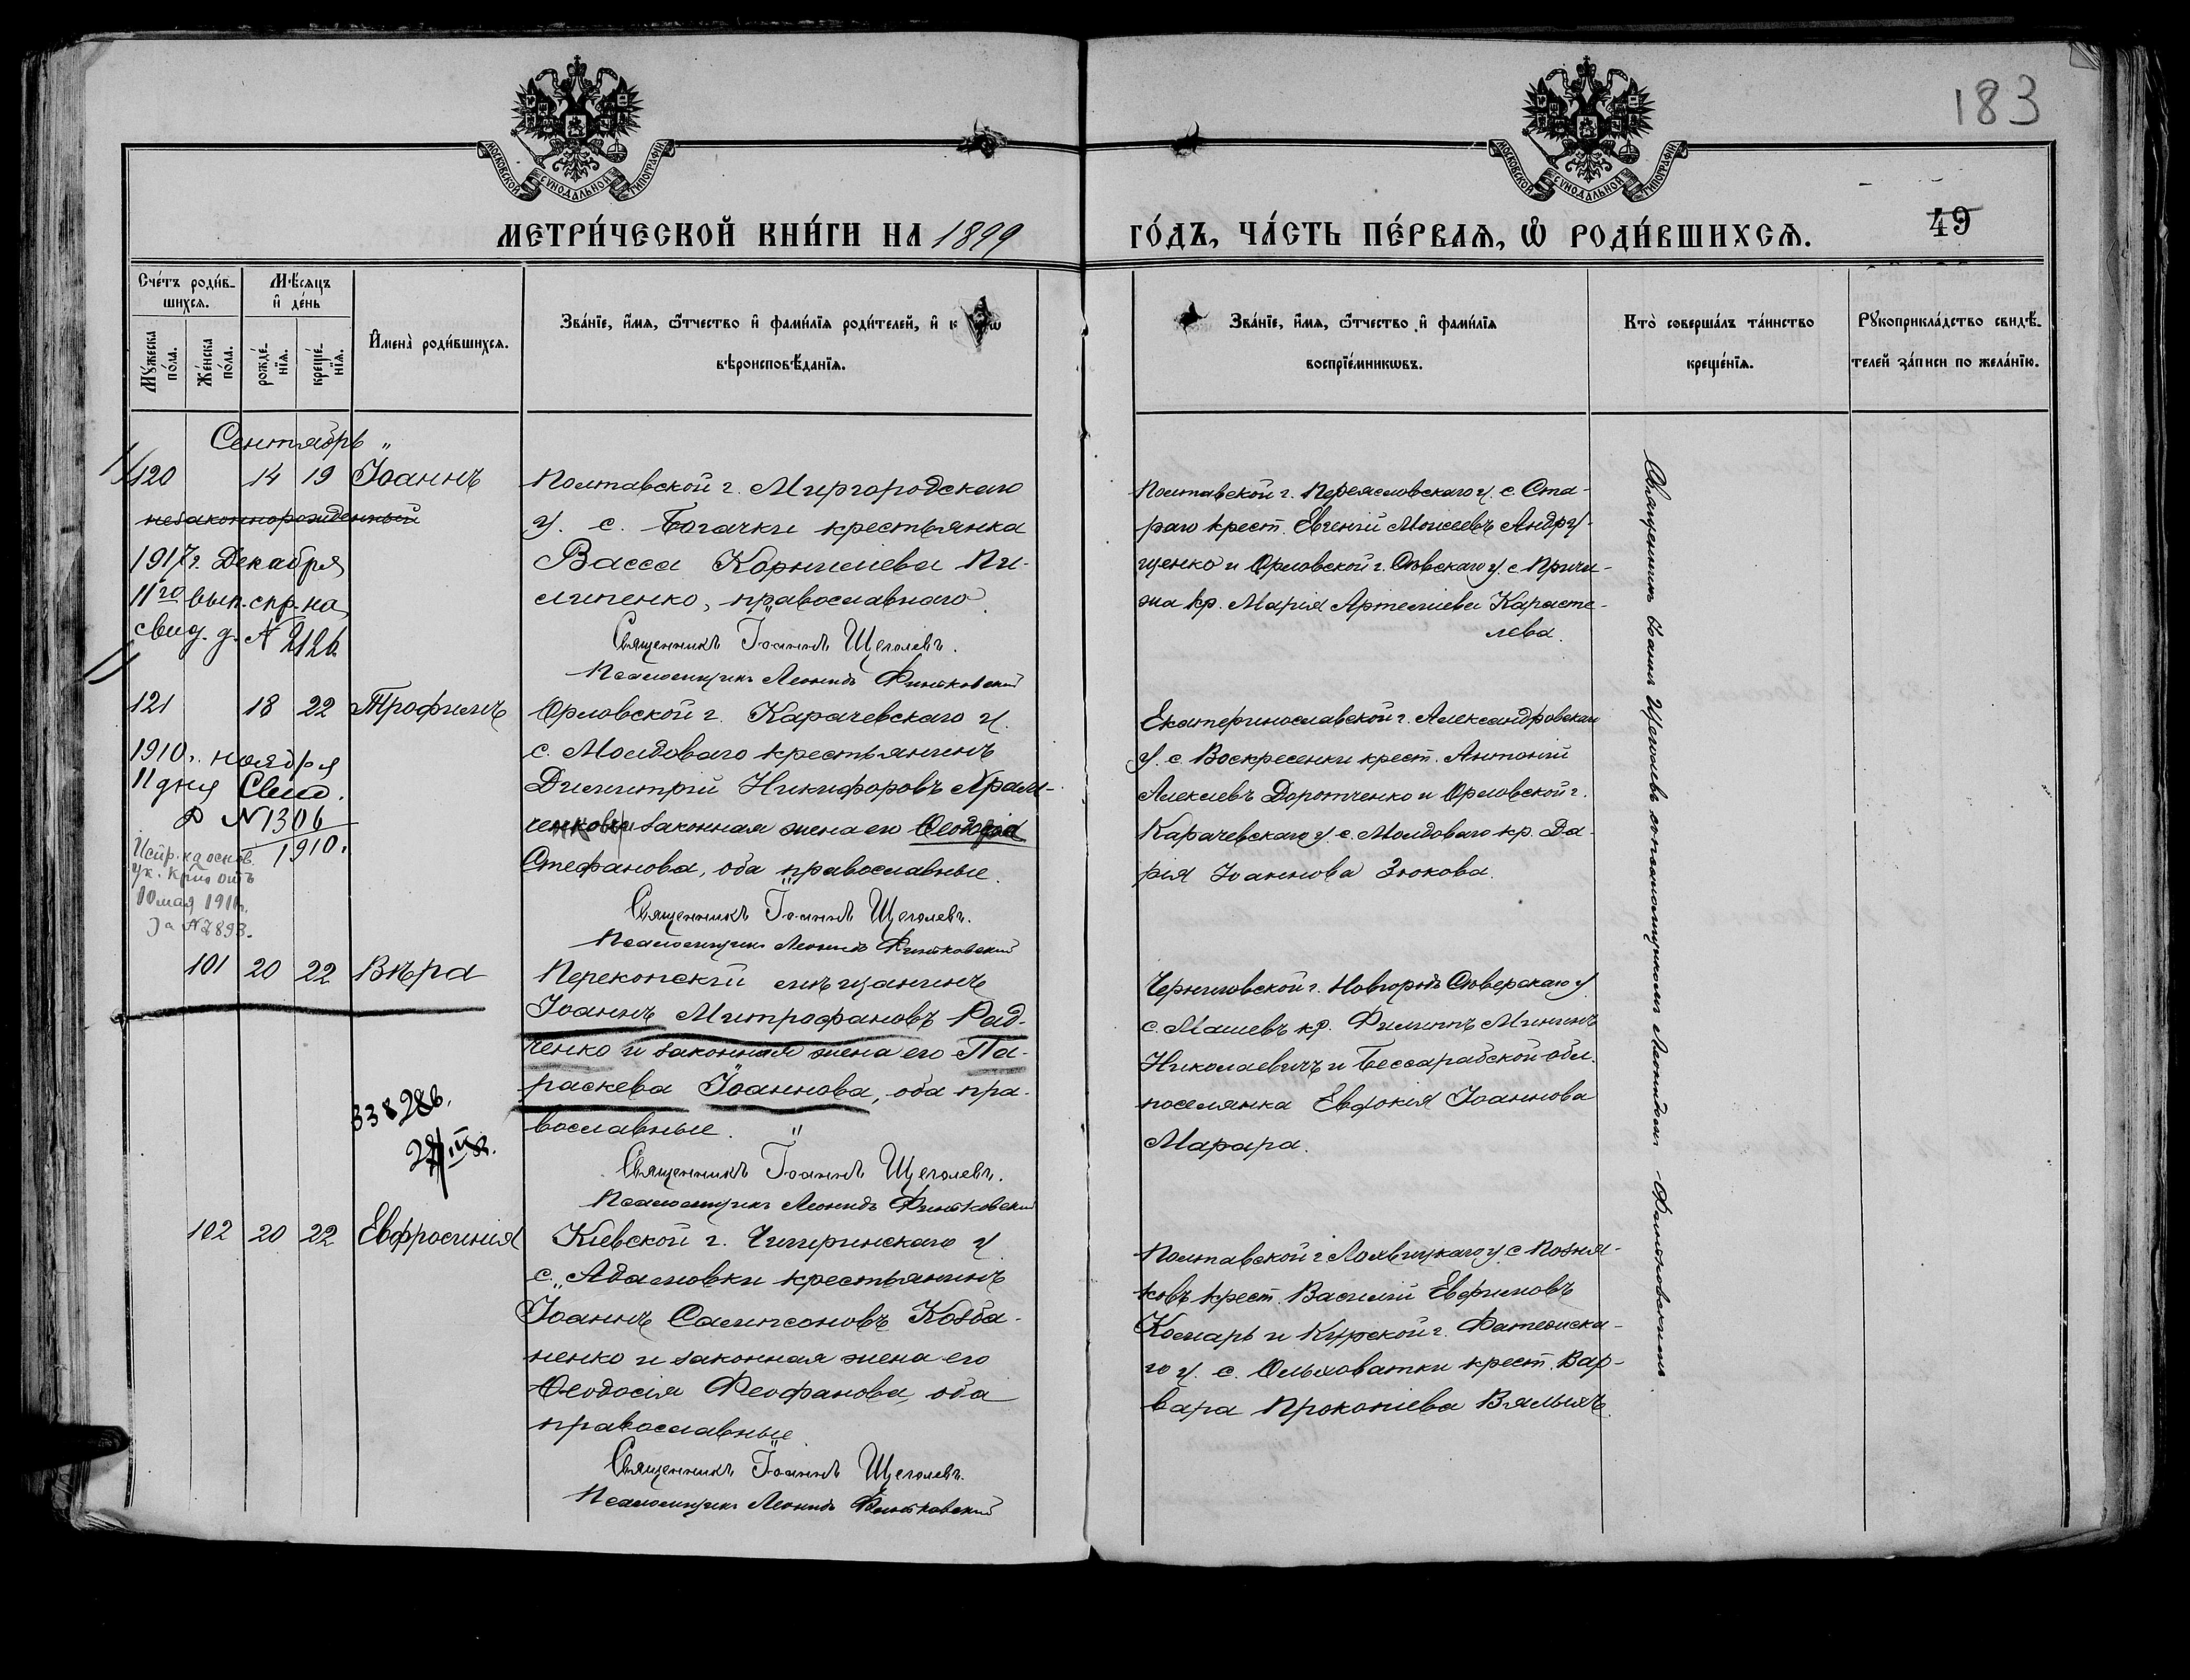 183
МОСКОВСКОЙ СѴНОДАЛЬНОЙ ТИПОГРАФІИ
МОСКОВСКОЙ СѴНОДАЛЬНОЙ ТИПОГРАФІИ
МЕТРИ́ЧЕСКОЙ КНИ́ГИ НА 1899
ГО́ДЪ, ЧА́СТЬ ПЕ́РВАѦ, Ѽ РОДИ́ВШИХСѦ.
49
Сче́тъ роди́в-
шихсѧ.
Мѣ́сѧцъ
и҆ де́нь
Мꙋ́жеска
по́ла.
Же́нска
по́ла.
рожде́-
нїѧ.
креще́-
нїѧ.
И҆мена̀ роди́вшихсѧ.
Зва́нїе, и҆́мѧ, ѻ҆́тчество и҆ фами́лїѧ роди́телей, и҆ к
вѣроисповѣ́данїѧ.
Зва́нїе, и҆́мѧ, ѻ҆́тчество и҆ фами́лїѧ
воспрїе́мникѡвъ.
Кто̀ соверша́лъ та́инство
креще́нїѧ.
Рꙋкоприкла́дство свидѣ́-
телей за́писи по жела́нїю.
Сентябрь "
120 14 19 Іоаннъ
незаконнорожденный
1917г. Декабря
11го вып. спр. на
свид. д. № 2126
Полтавской г. Миргородскаго
у. с. Богачки крестьянка
Васса Корнилиева Пи-
липенко, православнаго.
Священникъ Іоаннъ Щеголевъ.
Псаломщикъ Леонидъ Финьковский
Полтавской г. Переясловскаго у. с. Ста-
раго крест. Евгений Моисеевъ Андру-
щенко и Орловской г. Сѣвскаго у. с.
кр. Мария Артемиева Карасте-
лева.
121 18 22 Трофимъ
1910г. ноября
11 дня Свид.
№ 1306
1910.
Испр. на основ.
ук. Кр... отъ
10 мая 1911г.
за № 7893.
Орловской г. Карачевскаго у.
с. Молдоваго крестьянинъ
Димитрий Никифоровъ Храм-
ченковъ и законная жена его Ѳеодора
Стефанова, оба православные.
Священникъ Іоаннъ Щеголевъ.
Псаломщикъ Леонидъ Финьковский
Екатеринославской г. Александровскаго
у. с. Воскресенки крест. Антоний
Алексѣевъ Доротченко и Орловской г.
Карачевскаго у. с. Молдоваго кр. Да-
рия Іоаннова Зюкова.
101 20 22 Вѣра
338286.
Перекопский мѣщанинъ
Іоаннъ Митрофановъ Рад-
ченко и законная жена его Па-
раскева Іоаннова, оба пра-
вославные.
Священникъ Іоаннъ Щеголевъ.
Псаломщикъ Леонидъ Финьковский
Черниговской г. Новгородъ Сѣверскаго у.
с. Машевъ кр. Филиппъ Мининъ
Николаевичъ и Бессарабской обл.
поселянка Евдокия Іоаннова
Марара.
102 20 22 Евфросиния
Киевской г. Чигиринскаго у.
с. Адамовки крестьянинъ
Іоаннъ Сампсоновъ Козба-
ненко и законная жена его
Ѳеодосия Феофанова, оба
православные
Священникъ Іоаннъ Щеголевъ.
Псаломщикъ Леонидъ Финьковский
Полтавской г. Лохвицкаго у. с. Позня-
ковъ крест. Василий Евфимовъ
Комарь и Курской г. Фатежска-
го у. с. Ольховатки крест. Вар-
вара Прокопиева Вялыхъ.
Священникъ Іоаннъ Щеголевъ съ псаломщикомъ Леонидомъ Финьковскимъ.